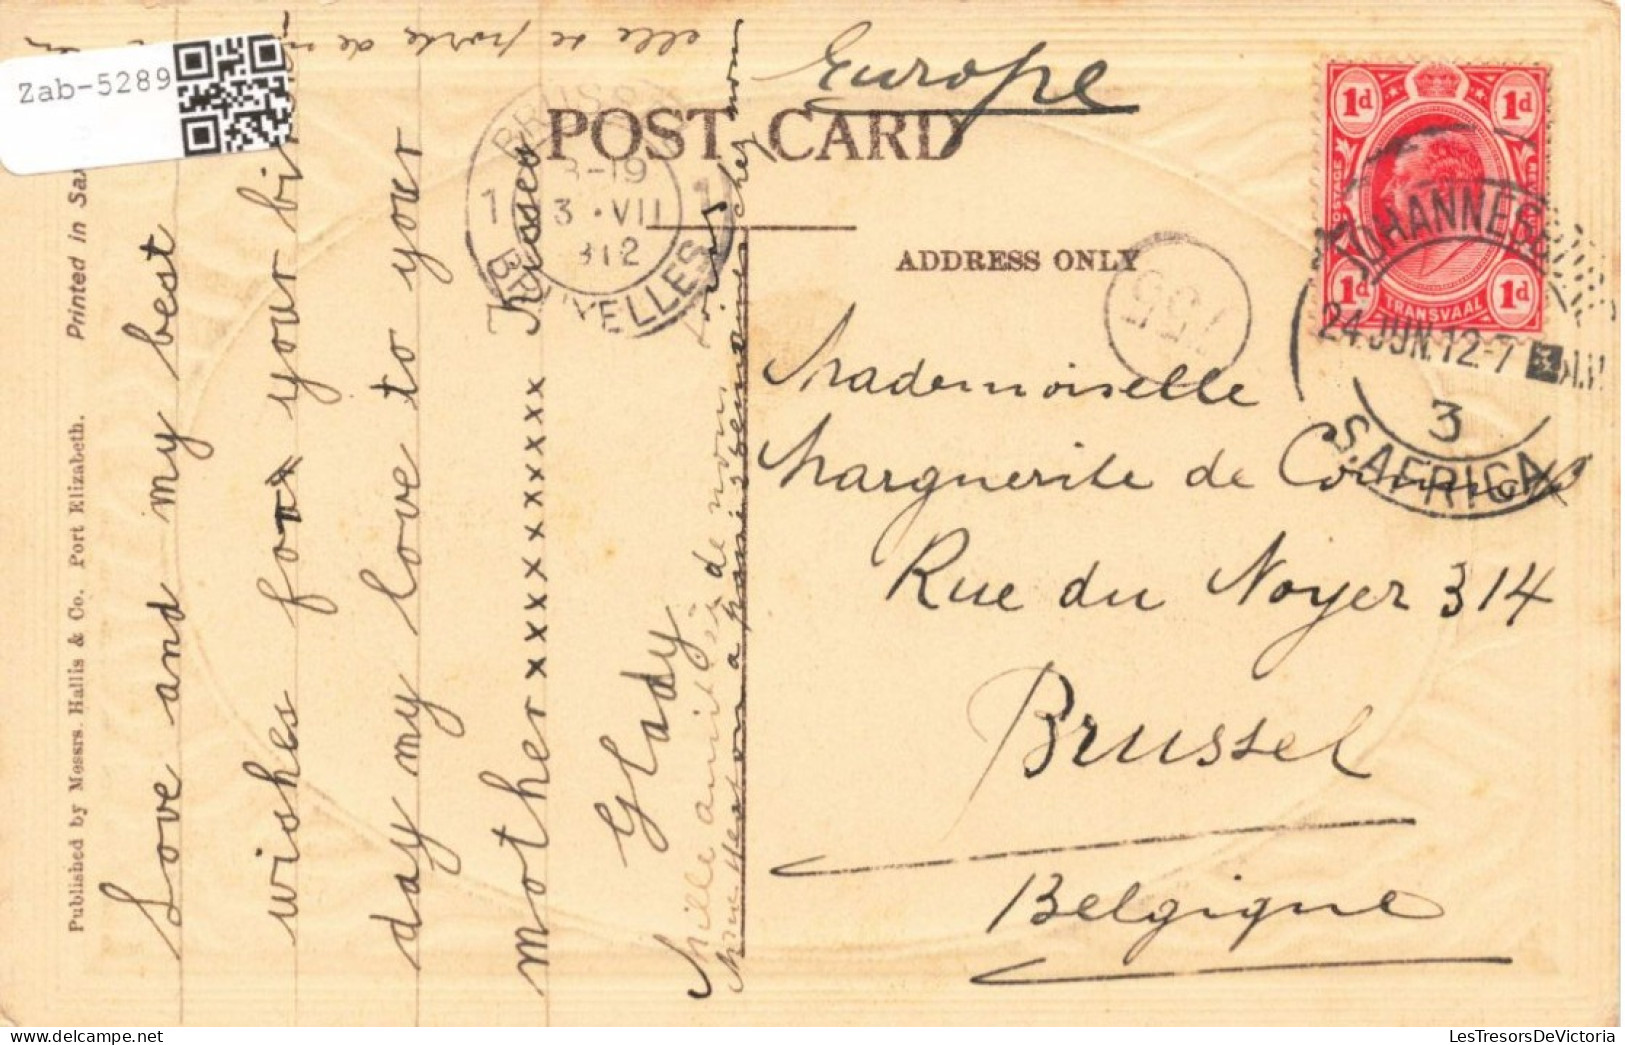 Zab-5289
elle se porte
Europe
POST CARD
ADDRESS ONLY
BRUSSEL
1 1
3 VII
BRUXELLES
155
1d 1d
POSTAGE
TRANSVAAL
1d 1d
JOHANNESB
24 JUN.12-7
3
S. AFRICA
Mademoiselle
Marguerite de
Rue du Noyer 314
Brussel
Belgique
Love and my best
wishes for your birth
day my love to your
mother xxxxxxxxxxx Kisses
Glady
Mille amitiés de nous
Published by Messrs. Hallis & Co. Port Elizabeth. Printed in Sax
LesTresorsDeVictoria.com